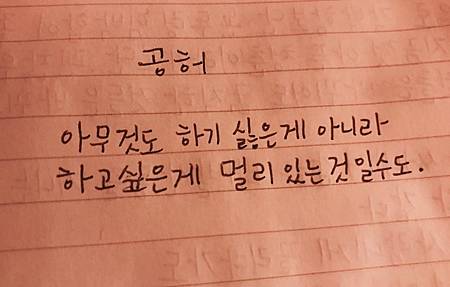 공허
아무것도 하기 싫은게 아니라
하고싶은게 멀리 있는것일수도.